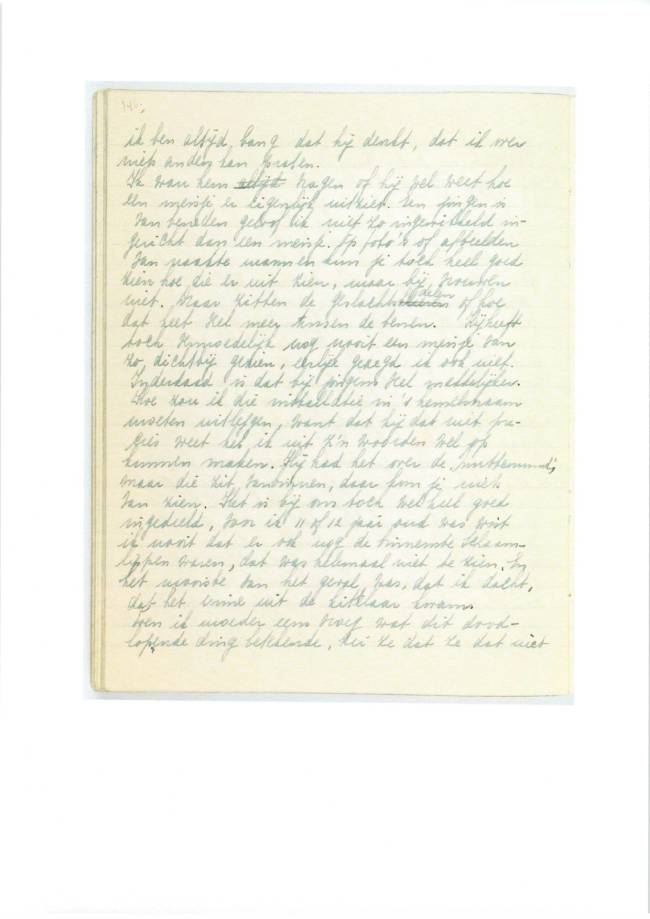 140.
ik ben altijd bang dat hij denkt, dat ik over
niets anders kan praten.
Ik wou hem altijd vragen of hij wel weet hoe
een meisje er eigenlijk uitziet. Een jongen is
van beneden geloof ik niet zo ingewikkeld in-
gericht dan een meisje. Op foto's of afbeelden
van naakte mannen kun je toch heel goed
zien hoe die er uit zien, maar bij vrouwen
niet. Daar zitten de geslachtsdelen of hoe
dat heet veel meer tussen de benen. Hij heeft
toch vermoedelijk nog nooit een meisje van
zo, dichtbij gezien, eerlijk gezegd ik ook niet.
Inderdaad is dat bij jongens veel makkelijker.
Hoe zou ik die installatie in 's hemelsnaam
moeten uitleggen, want dat hij dat niet pre-
cies weet heb ik uit z'n woorden wel op
kunnen maken. Hij had het over de „muttermund",
maar die zit, vanbinnen, daar kun je niets
van zien. Het is bij ons toch wel heel goed
ingedeeld, voor ik 11 of 12 jaar oud was wist
ik nooit dat er ook nog de binnenste schaam-
lippen waren, dat was helemaal niet te zien. En
het mooiste van het geval was, dat ik dacht,
dat het urine uit de kittelaar kwam.
Toen ik moeder eens vroeg wat dit dood-
lopende ding betekende, zei ze dat ze dat niet